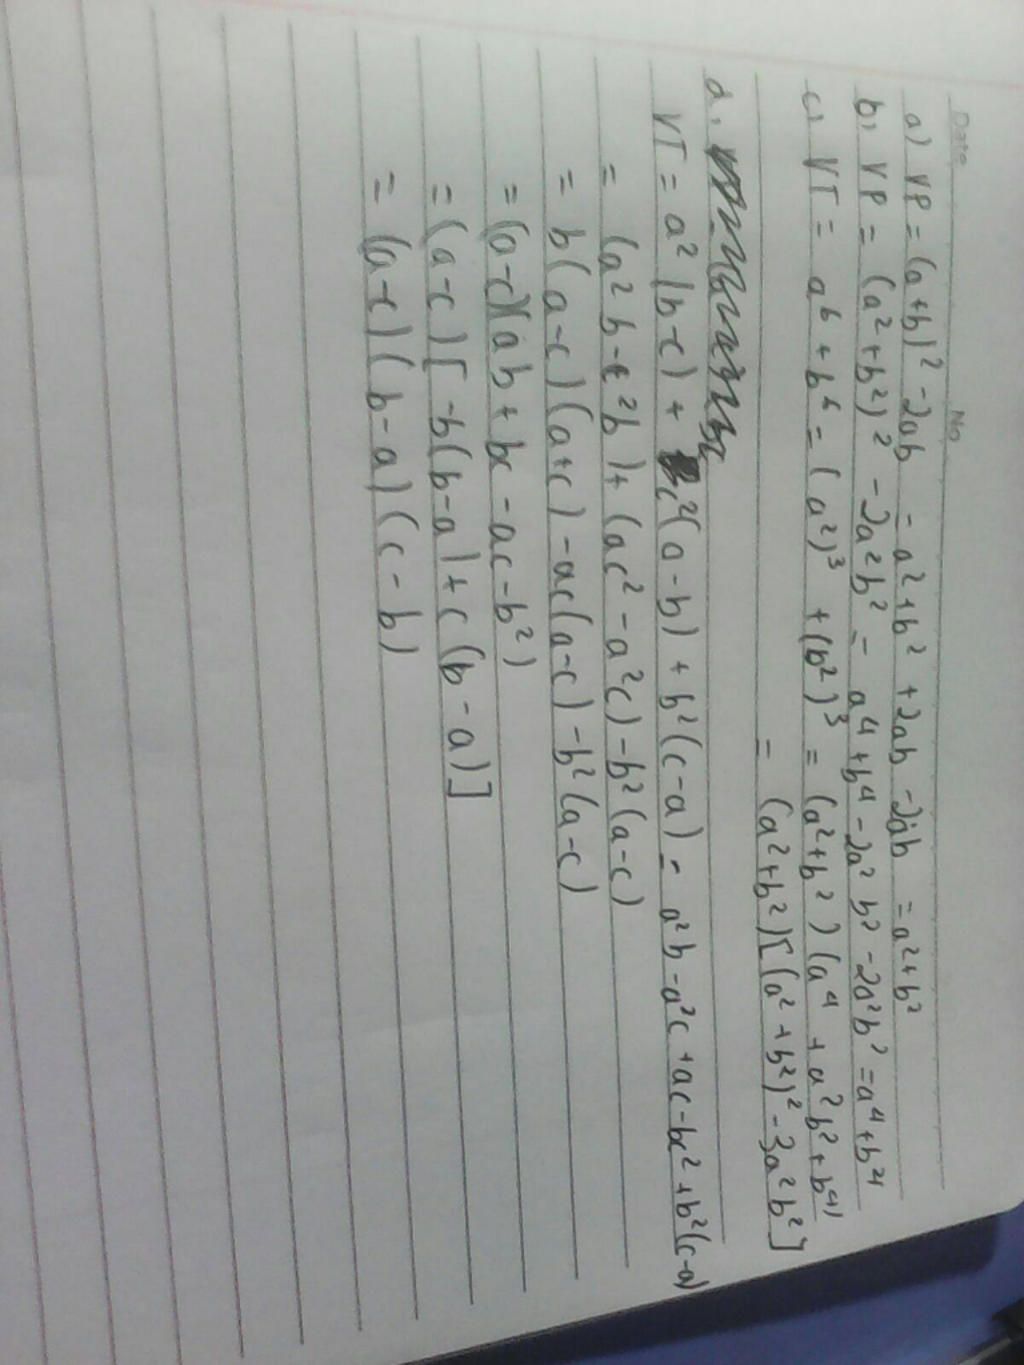 Date No
a) VP = (a+b)² - 2ab = a²+b² + 2ab - 2ab = a²+b²
b, VP = (a²+b²)² - 2a²b² = a⁴+b⁴ - 2a²b² - 2a²b² = a⁴+b⁴
c, VT = a⁶+b⁶ = (a²)³ + (b²)³ = (a²+b²)(a⁴ + a²b²+b⁴)
= (a²+b²)[(a²+b²)² - 3a²b²]
d,
VT = a²(b-c) + c²(a-b) + b²(c-a) = a²b - a²c + ac - bc² + b²(c-a)
= (a²b - c²b) + (ac² - a²c) - b²(a-c)
= b(a-c)(a+c) - ac(a-c) - b²(a-c)
= (a-c)(ab + bc - ac - b²)
= (a-c)[-b(b-a) + c(b-a)]
= (a-c)(b-a)(c-b)